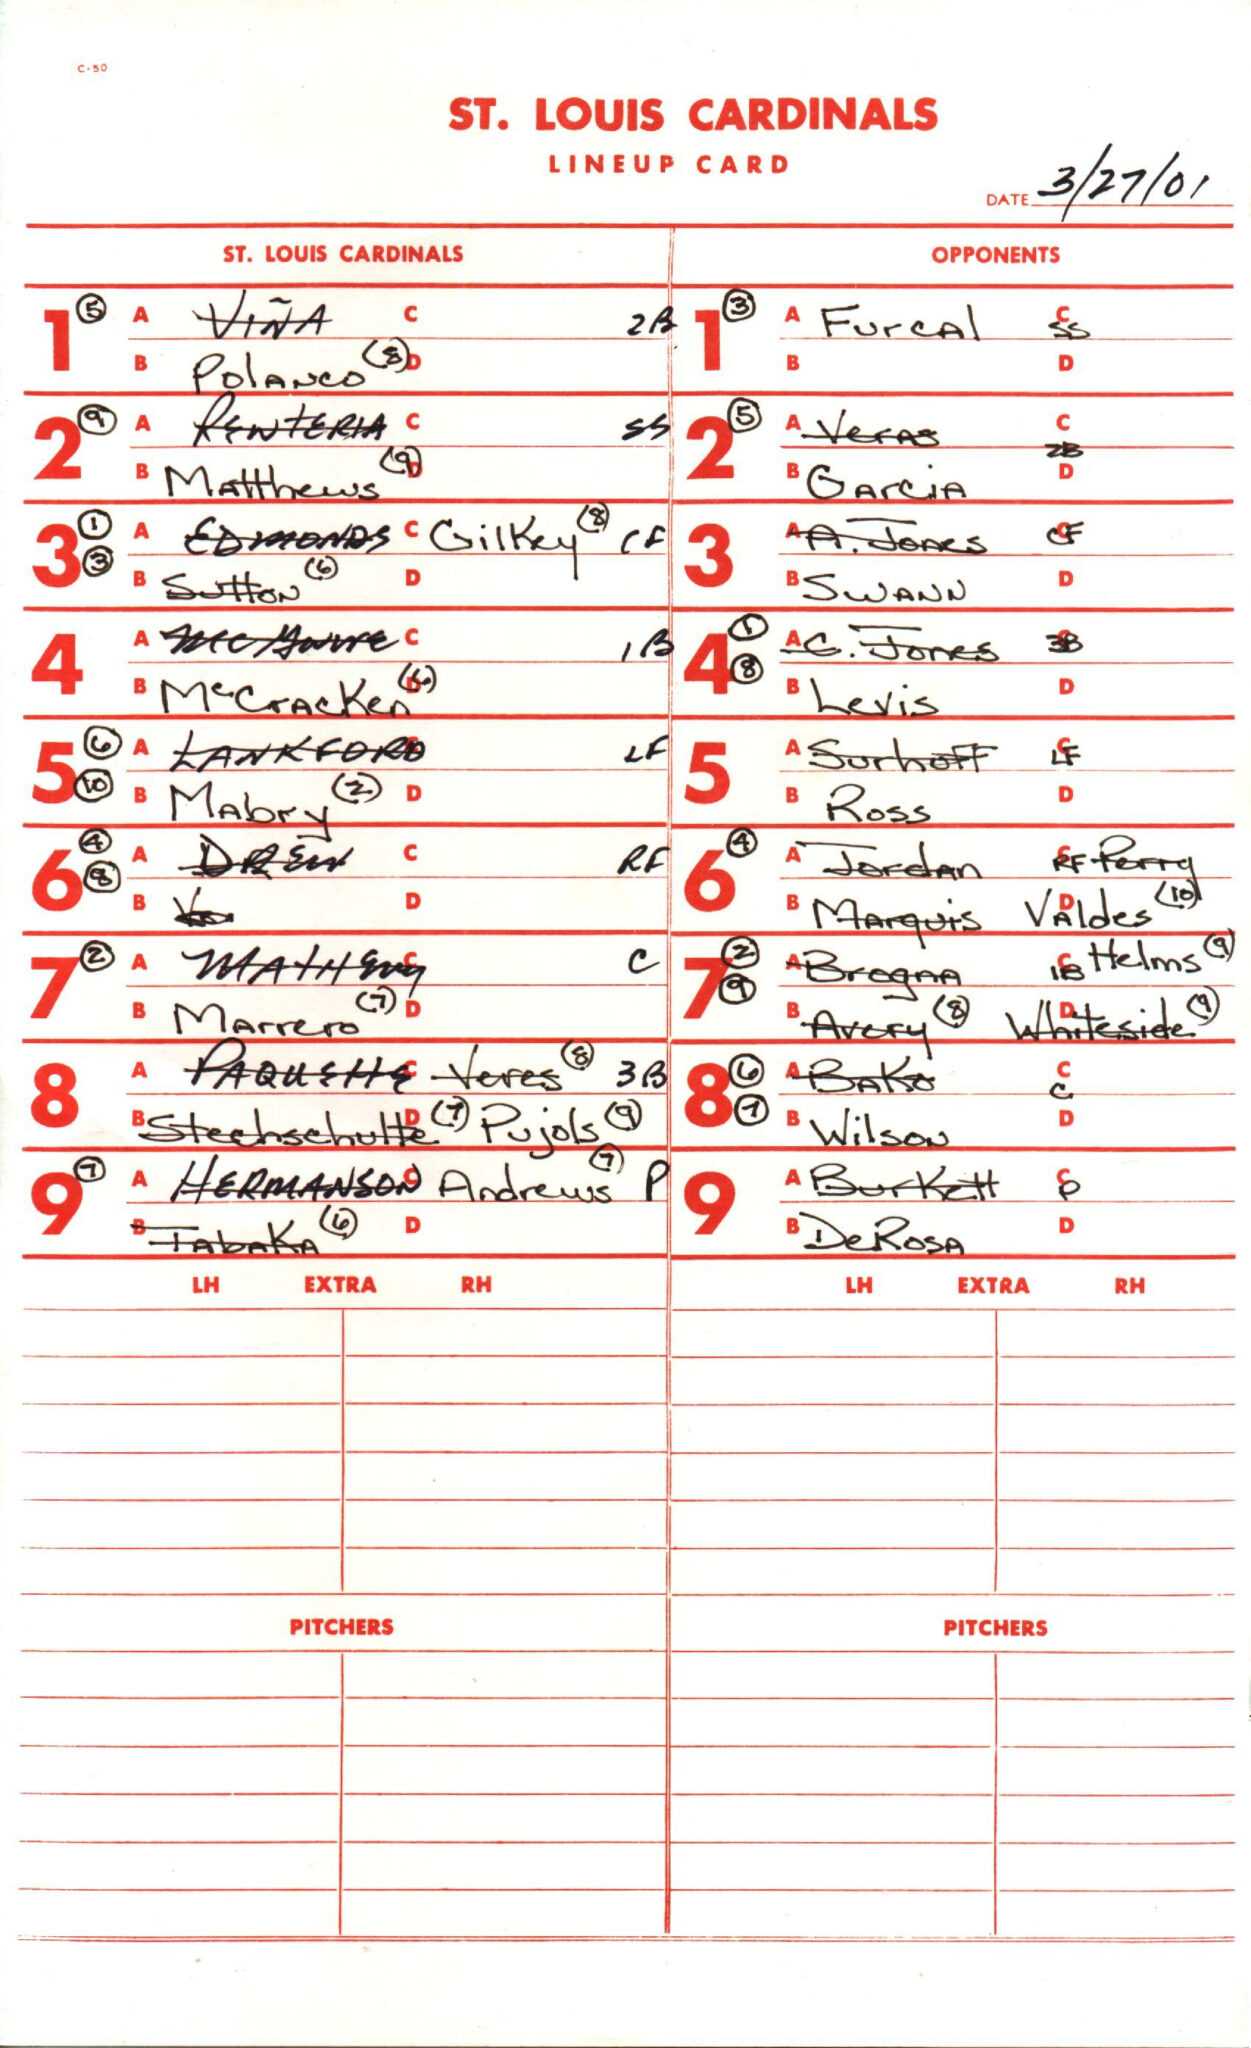 C-50
ST. LOUIS CARDINALS
LINEUP CARD
DATE 3/27/01
ST. LOUIS CARDINALS
OPPONENTS
1 5 A VIÑA C 2B
B Polanco (8) D
2 9 A RENTERIA C SS
B Matthews (9) D
3 1 3 A EDMONDS C Gilkey (8) CF
B Sutton (6) D
4 A McGwire C 1B
B McCracken (6) D
5 6 10 A LANKFORD C LF
B Mabry (2) D
6 4 8 A DREW C RF
B D
7 2 A MATHENY C C
B Marrero (7) D
8 A PAQUETTE C Veres (8) 3B
B Stechschulte (7) D Pujols (9)
9 7 A HERMANSON C Andrews (7) P
B Tabaka (6) D
1 3 A Furcal C SS
B D
2 5 A Veras C 2B
B Garcia D
3 A A. Jones C CF
B Swann D
4 1 8 A C. Jones C 3B
B Levis D
5 A Surhoff C LF
B Ross D
6 4 A Jordan C RF Perry
B Marquis D Valdes (10)
7 2 9 A Brogna C 1B Helms (9)
B Avery (8) D Whiteside (9)
8 6 7 A Bako C C
B Wilson D
9 A Burkett C P
B DeRosa D
LH EXTRA RH
LH EXTRA RH
PITCHERS
PITCHERS